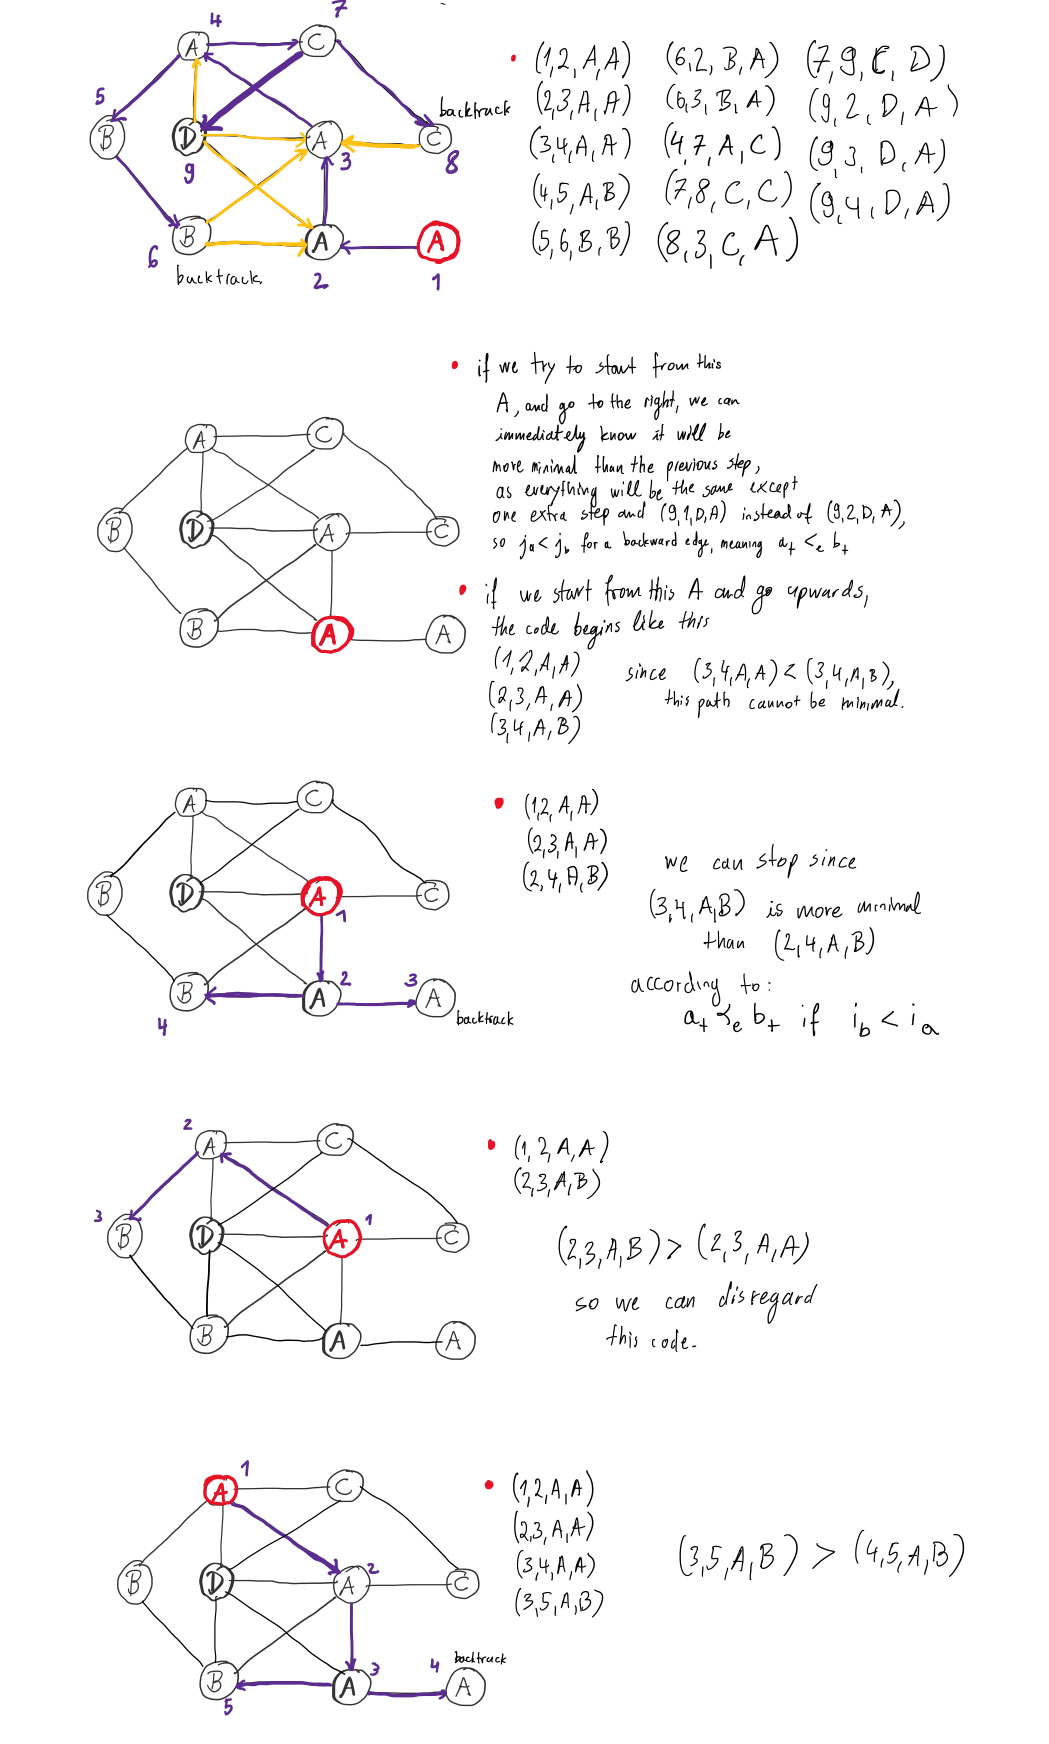 4
7
A
C
5
backtrack
B
D
A
C
9
3
8
B
A
A
6
backtrack
2
1
(1,2,A,A) (6,2,B,A) (7,9,C,D)
(2,3,A,A) (6,3,B,A) (9,2,D,A)
(3,4,A,A) (4,7,A,C) (9,3,D,A)
(4,5,A,B) (7,8,C,C) (9,4,D,A)
(5,6,B,B) (8,3,C,A)
if we try to start from this
A, and go to the right, we can
immediately know it will be
more minimal than the previous step,
as everything will be the same except
one extra step and (9,1,D,A) instead of (9,2,D,A),
so ja < jb for a backward edge, meaning a+ <e b+
A
C
B
D
A
C
B
A
A
if we start from this A and go upwards,
the code begins like this
(1,2,A,A)
(2,3,A,A)
(3,4,A,B)
since (3,4,A,A) < (3,4,A,B),
this path cannot be minimal.
A
C
B
D
A
C
1
B
A
2
3
A
4
backtrack
(1,2,A,A)
(2,3,A,A)
(2,4,A,B)
we can stop since
(3,4,A,B) is more minimal
than (2,4,A,B)
according to:
a+ ≺e b+ if ib < ia
2
A
C
3
B
D
A
1
C
B
A
A
(1,2,A,A)
(2,3,A,B)
(2,3,A,B) > (2,3,A,A)
so we can disregard
this code.
1
A
C
B
D
A
2
C
B
A
3
4
A
5
backtrack
(1,2,A,A)
(2,3,A,A)
(3,4,A,A)
(3,5,A,B)
(3,5,A,B) > (4,5,A,B)